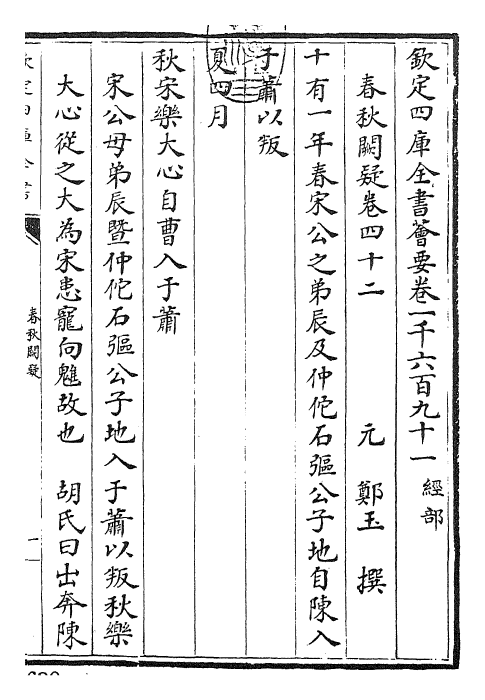 欽定四庫全書薈要卷一千六百九十一 經部
春秋闕疑卷四十二 元 鄭玉 撰
十有一年春宋公之弟辰及仲佗石彄公子地自陳入
于蕭以叛
夏四月
秋宋樂大心自曹入于蕭
宋公母弟辰暨仲佗石彄公子地入于蕭以叛秋樂
大心從之大為宋患寵向魋故也 胡氏曰出奔陳
欽定四庫全書
春秋闕疑
一